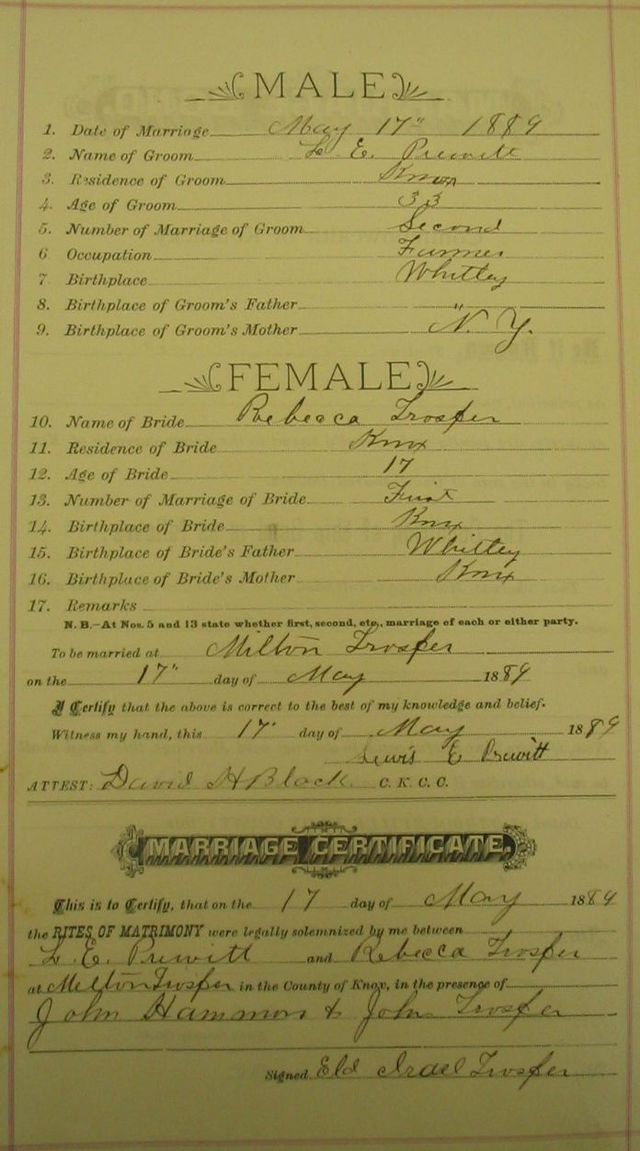 MALE
1. Date of Marriage May 17" 1889
2. Name of Groom L. E. Prewitt
3. Residence of Groom Knox
4. Age of Groom 33
5. Number of Marriage of Groom Second
6 Occupation Farmer
7 Birthplace Whitley
8. Birthplace of Groom's Father "
9. Birthplace of Groom's Mother N. Y.
FEMALE
10. Name of Bride Rebecca Trosper
11. Residence of Bride Knox
12. Age of Bride 17
13. Number of Marriage of Bride First
14. Birthplace of Bride Knox
15. Birthplace of Bride's Father Whitley
16. Birthplace of Bride's Mother Knox
17. Remarks
N. B.—At Nos. 5 and 13 state whether first, second, etc., marriage of each or either party.
To be married at Milton Trosper
on the 17" day of May 1889
I Certify that the above is correct to the best of my knowledge and belief.
Witness my hand, this 17" day of May 1889
Lewis E Prewitt
ATTEST: David H Black C. K. C. C.
MARRIAGE CERTIFICATE.
This is to Certify, that on the 17 day of May 1889
the RITES OF MATRIMONY were legally solemnized by me between
L. E. Prewitt and Rebecca Trosper
at Melton Trosper in the County of Knox, in the presence of
John Hammon & John Trosper
Signed Eld Israel Trosper